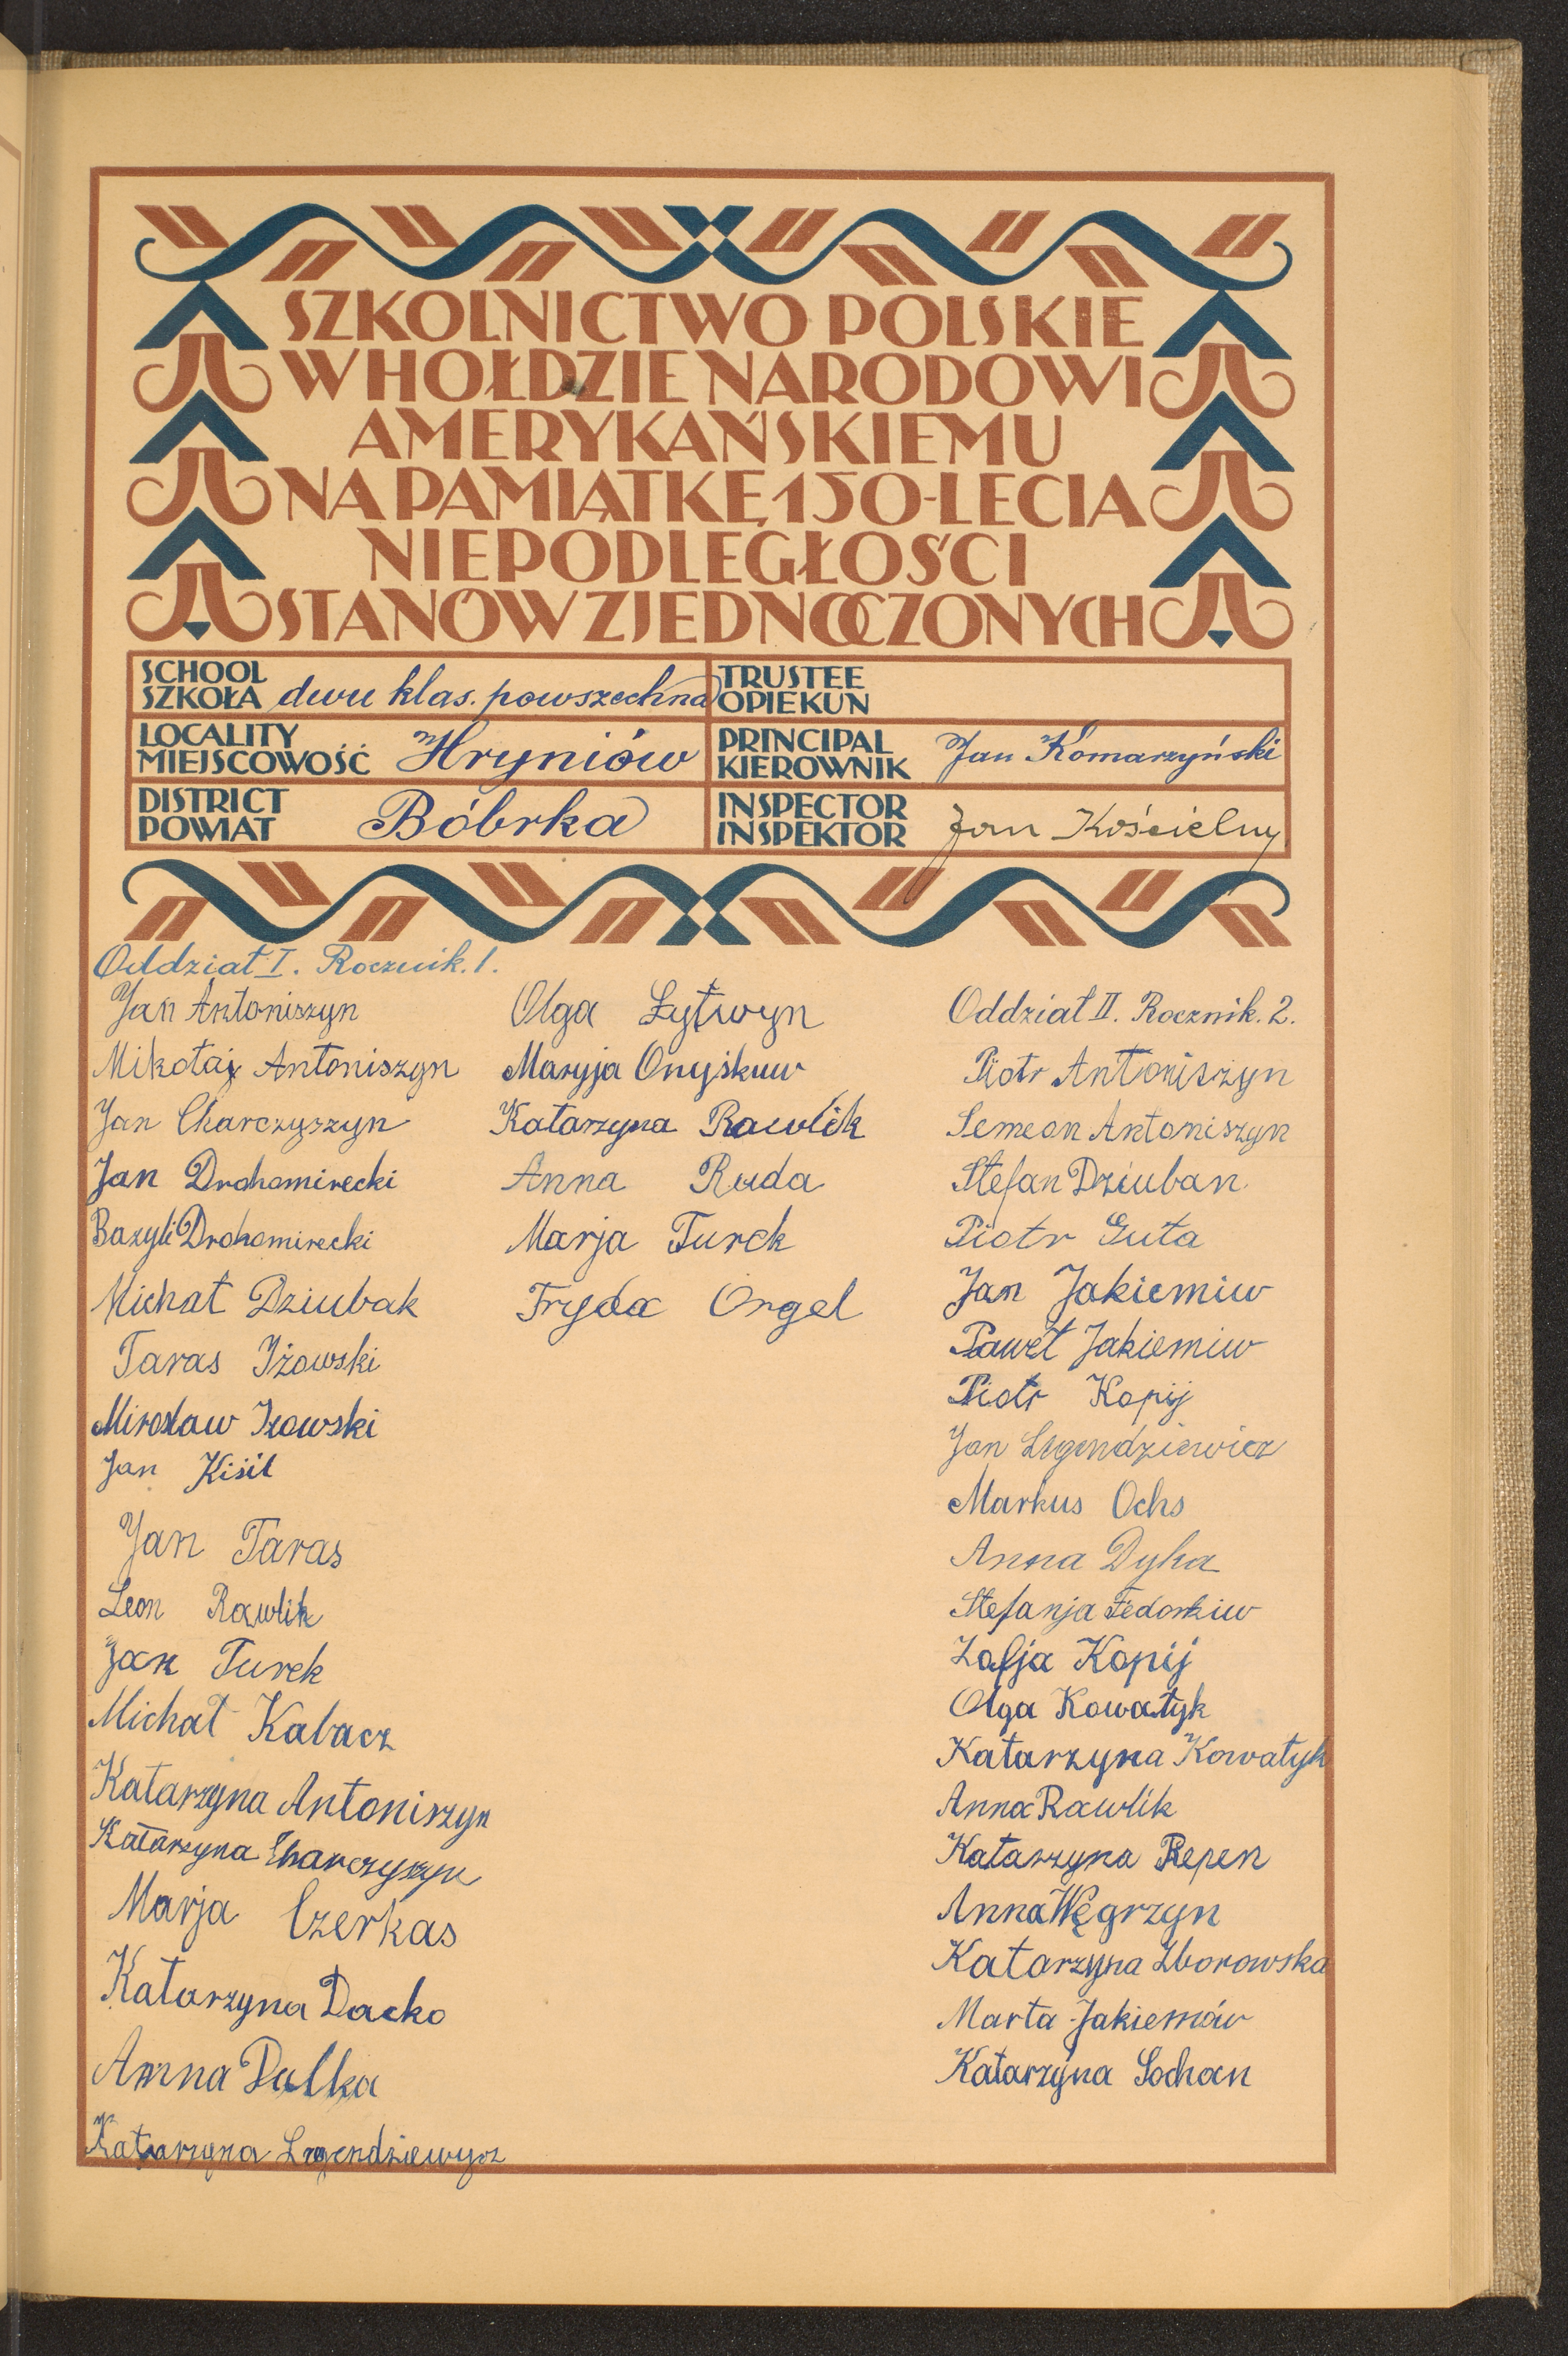 SZKOLNICTWO POLSKIE
W HOŁDZIE NARODOWI
AMERYKAŃSKIEMU
NA PAMIĄTKĘ 150-LECIA
NIEPODLEGŁOŚCI
STANÓW ZJEDNOCZONYCH
SCHOOL
SZKOŁA dwu klas. powszechna
TRUSTEE
OPIEKUN
LOCALITY
MIEJSCOWOŚĆ Hryniów
PRINCIPAL
KIEROWNIK Jan Komarzyński
DISTRICT
POWIAT Bóbrka
INSPECTOR
INSPEKTOR Jan Kościelny
Oddział I. Rocznik. 1.
Jan Antoniszyn
Mikołaj Antoniszyn
Jan Charczyszyn
Jan Drohomirecki
Bazyli Drohomirecki
Michał Dziubak
Taras Iżowski
Mirosław Iżowski
Jan Kisił
Jan Taras
Leon Rawlik
Jan Turek
Michał Kabacz
Katarzyna Antoniszyn
Katarzyna Charczyszyn
Marja Czerkas
Katarzyna Dacko
Anna Dulka
Katarzyna Legendziewycz
Olga Łytwyn
Maryja Onyśkuw
Katarzyna Rawlik
Anna Ruda
Marja Turek
Fryda Orgel
Oddział II. Rocznik. 2.
Piotr Antoniszyn
Semeon Antoniszyn
Stefan Dziuban
Piotr Guta
Jan Jakiemiw
Paweł Jakiemiw
Piotr Kopij
Jan Legendziewicz
Markus Ochs
Anna Dyha
Stefanja Fedorkiw
Zofja Kopij
Olga Kowałyk
Katarzyna Kowałyk
Anna Rawlik
Katarzyna Repen
Anna Węgrzyn
Katarzyna Zborowska
Marta Jakiemów
Katarzyna Sochan